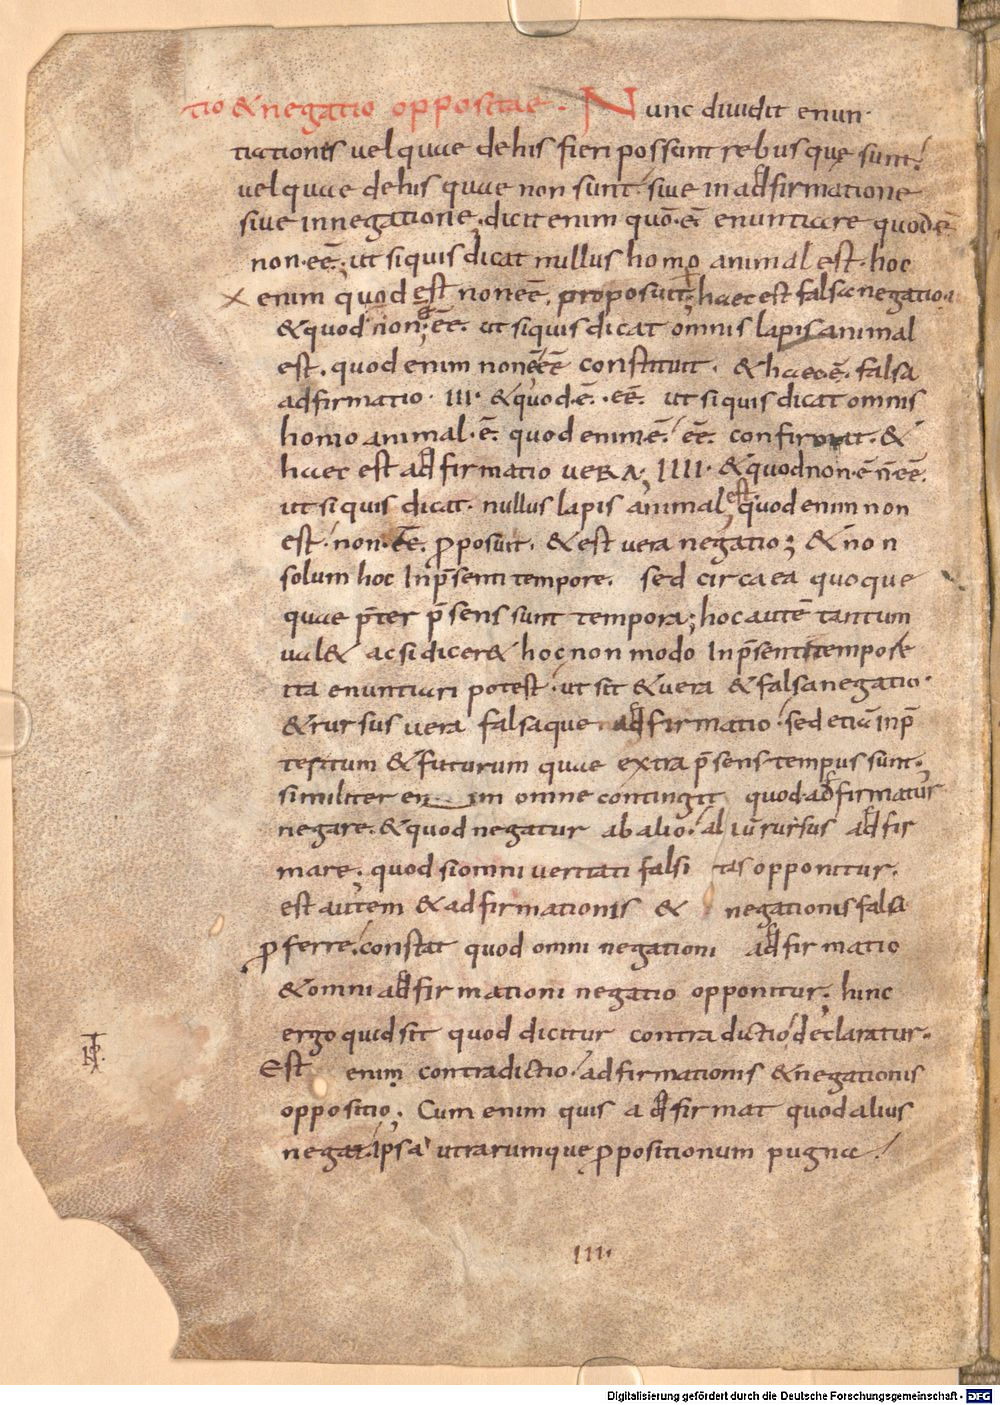 tio & negatio oppositae. Nunc diuidit enun
tiationes uel quae de his fieri possunt rebus quę sunt.
uel quae de his quae non sunt. siue in adfirmatione
siue in negatione. dicit enim quō. ē enuntiare quod ē
non. eē. ut siquis dicat nullus homo animal est. hoc
enim quod est non eē. proposuit. haec est falsa negatio.
& quod non ē. eē. ut siquis dicat omnis lapis animal
est. quod enim non ē eē constituit. & haec ē. falsa
adfirmatio. III. & quod ē. eē. ut siquis dicat omnis
homo animal. ē. quod enim ē. eē. confirmat. &
haec est adfirmatio uera; IIII. & quod non. ē n̄ eē.
ut siquis dicat. nullus lapis animal est quod enim non
est. non. eē. ꝓposuit. & est uera negatio; & non
solum hoc In p̄senti tempore. sed circa ea quoque
quae p̄ter p̄sens sunt tempora; hoc autē tantum
ual& ac si dicer& hoc non modo In p̄senti tempore
ita enuntiari potest. ut sit & uera & falsa negatio.
& rursus uera falsaque adfirmatio. sed etiā in p̄
teritum & futurum quae extra p̄sens tempus sunt.
similiter en im omne contingit quod adfirmatur
negare. & quod negatur ab alio. rursus adfir
mare. quod si omni ueritati falsi tas opponitur.
est autem & adfirmationis & negationis falsa
ꝓferre. constat quod omni negationi adfirmatio
& omni adfirmationi negatio opponitur. hinc
ergo quid sit quod dicitur contradictio declaratur.
Est enim contradictio. adfirmationis & negationis
oppositio. Cum enim quis adfirmat quod alius
negat. ipsa utrarumque ꝓpositionum pugna.
III.
Digitalisierung gefördert durch die Deutsche Forschungsgemeinschaft - DFG